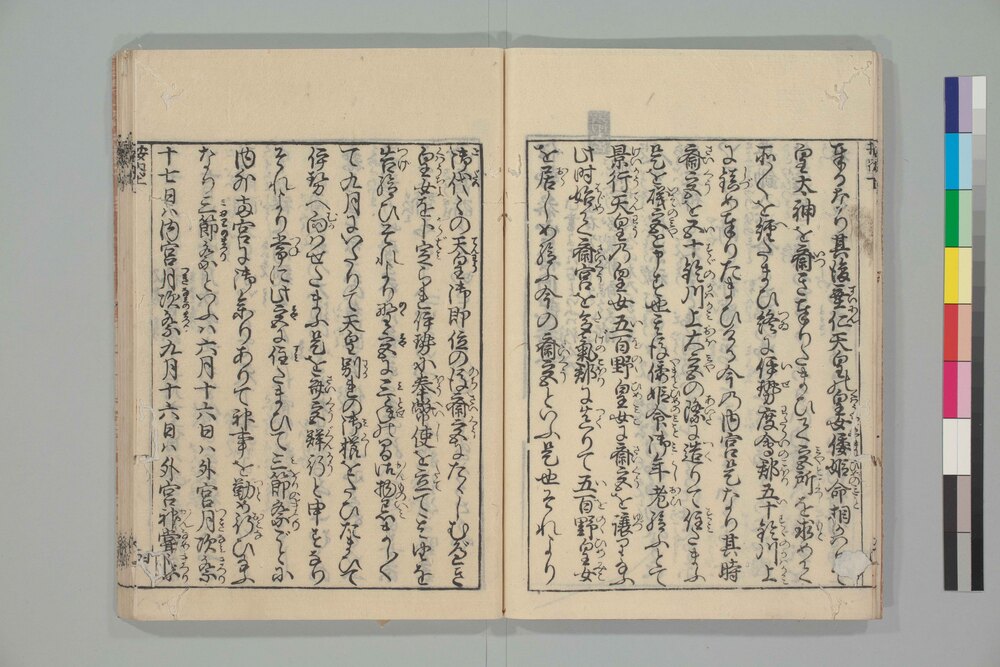 奉りたまふ其後垂仁天皇の皇女倭姫命相つぎて
皇太神を齋き奉りたまひて宮所を求めて
所々を経たまひ終に伊勢度會郡五十鈴川上
に鎮め奉りたまひける今の内宮是なり其時
齋宮を五十鈴川上大宮の際に造りて住たまふ
是を礒宮と申す也其後倭姫命御年老給ふとて
景行天皇の皇女五百野皇女に齋宮を譲りたまふ
此時始て齋宮を多氣郡に造りて五百野皇女
を居しめ給ふ今の齋宮といふ是也それより
御代々の天皇御即位の後齋宮にたゝしむべき
皇女を卜定られ伊勢へ奉幣使を立てそのよしを
告給ひそれより野宮に三年の間潔斎ましく
て九月にいたりて天皇別れの御櫛をたまひて
伊勢へ向はせたまふ是を齋宮群行と申すなり
それより常に此宮に住たまひて三節祭ごとに
内外両宮に御参りありて神事を勤め行ひたま
ふ三節祭といふハ六月十六日ハ外宮月次祭
十七日ハ内宮月次祭九月十六日ハ外宮神嘗祭